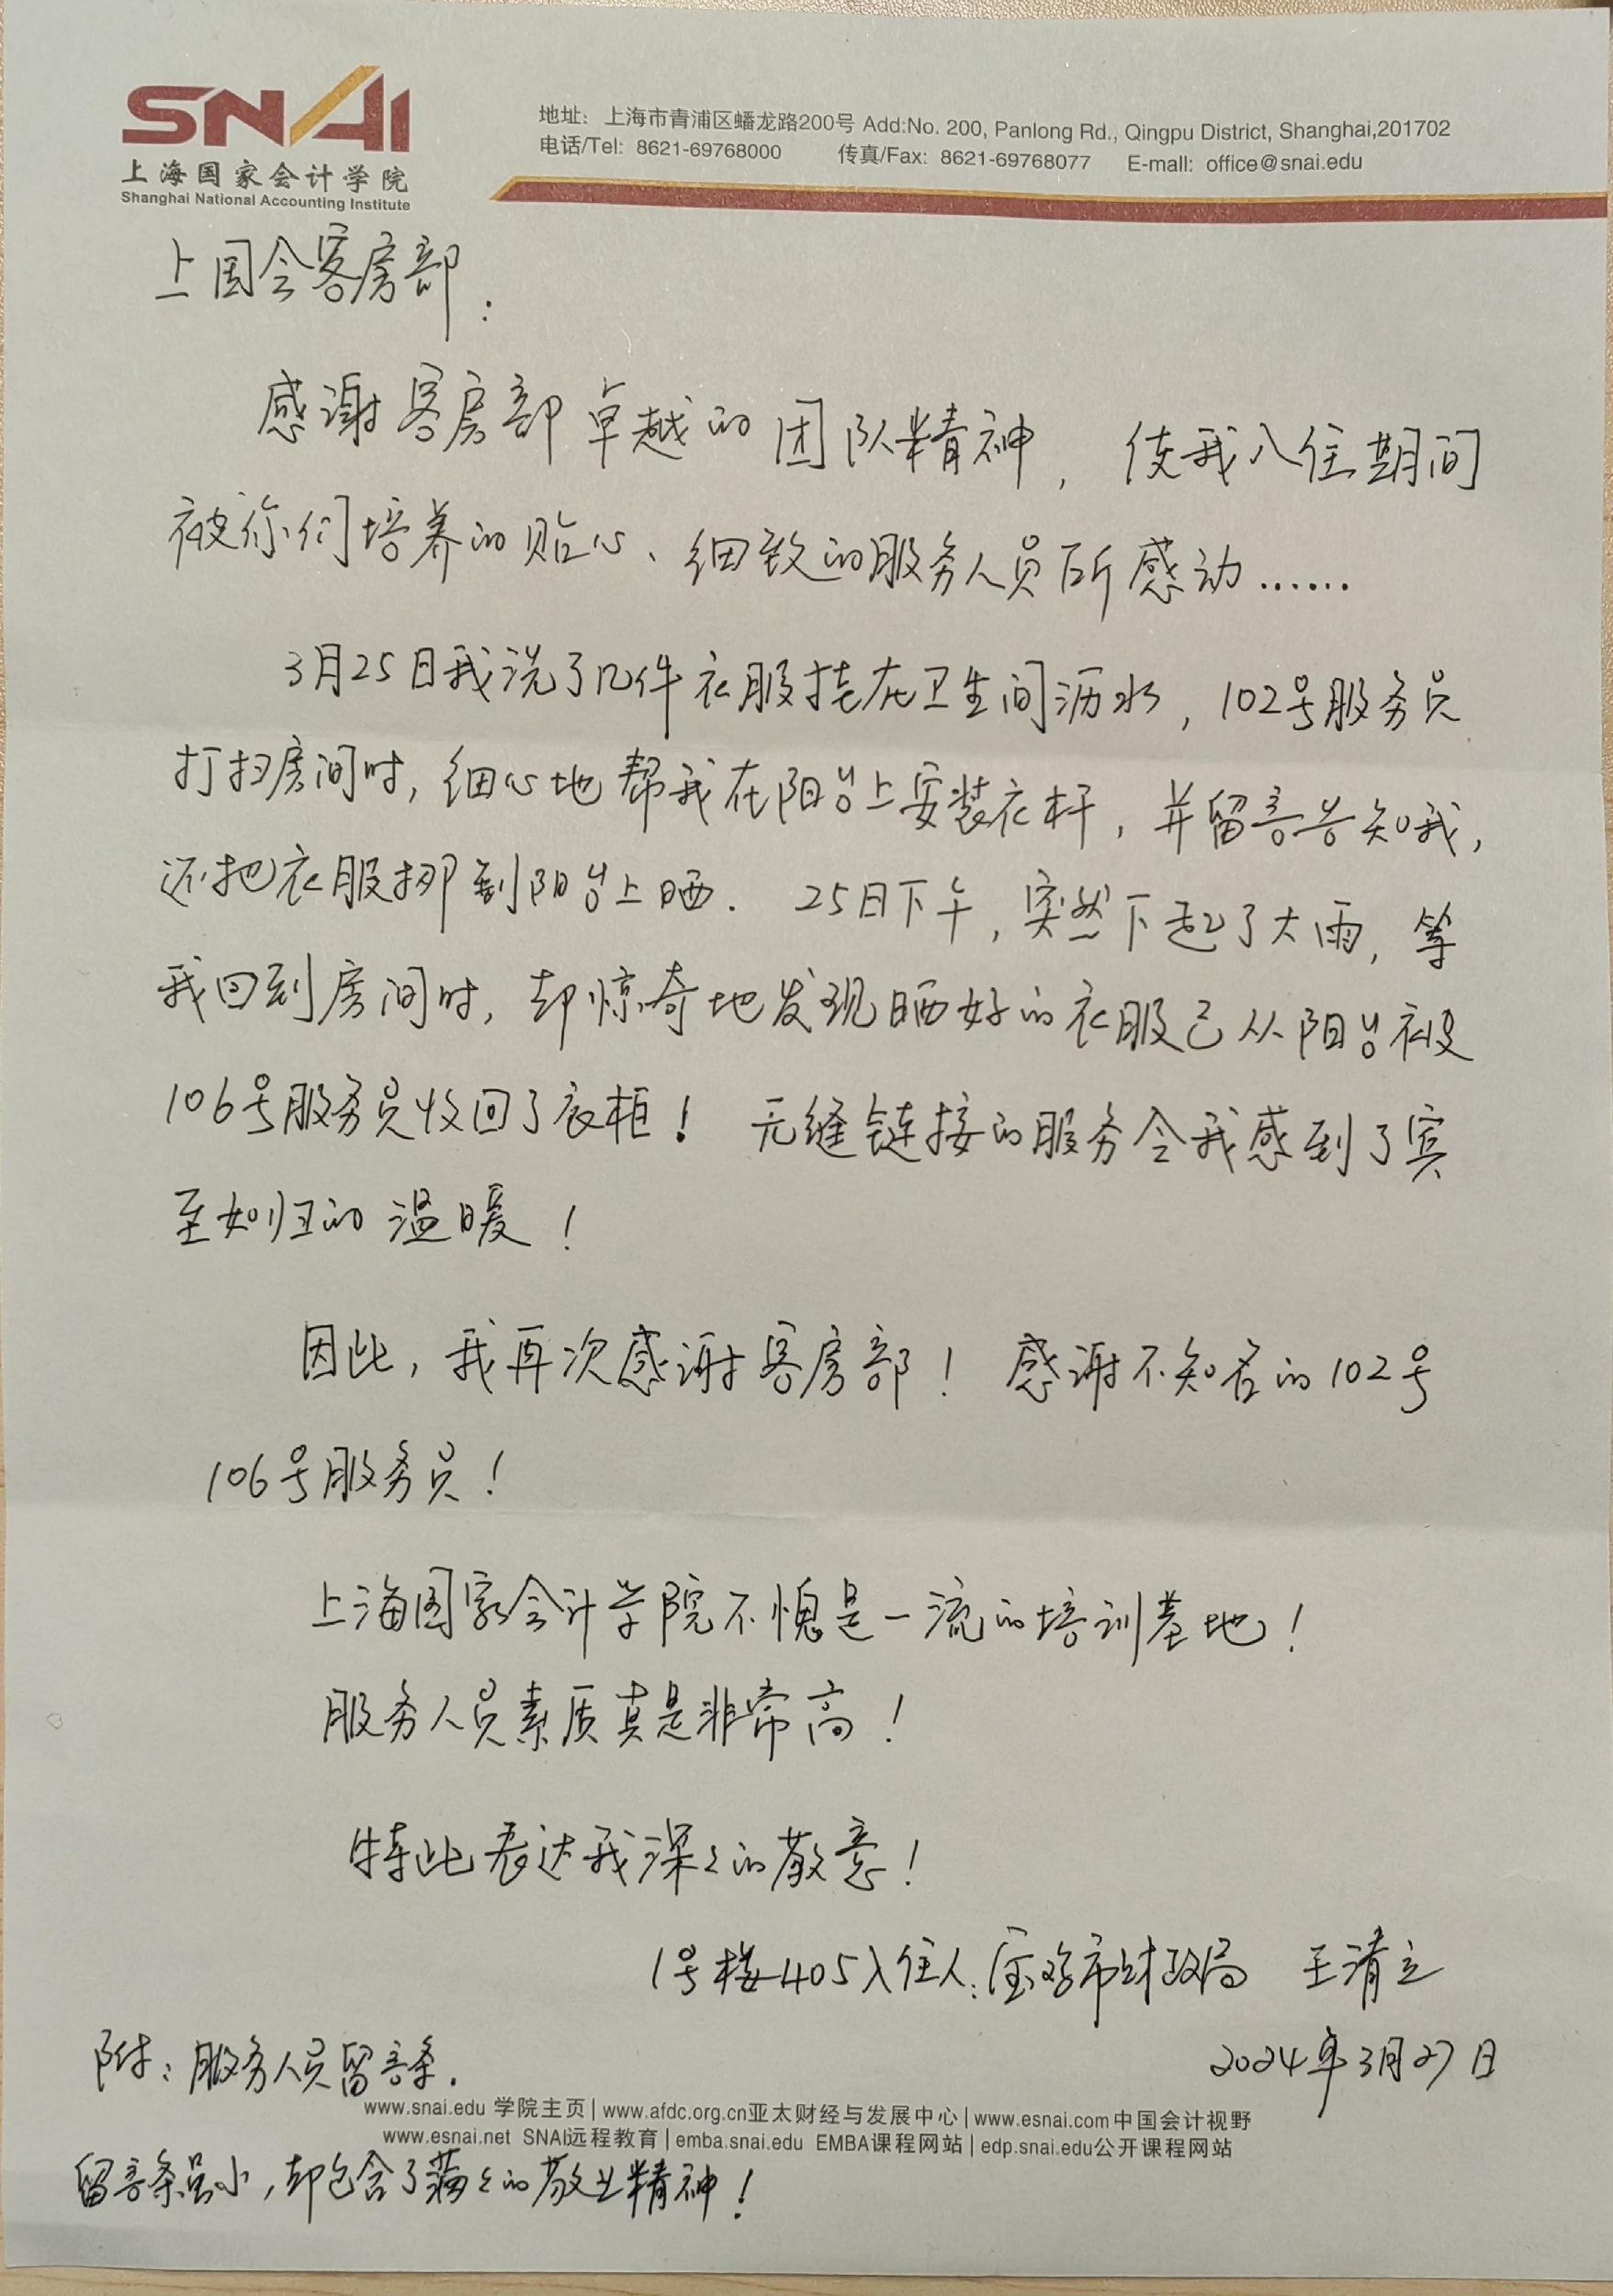 SNAI
上海国家会计学院
Shanghai National Accounting Institute
地址：上海市青浦区蟠龙路200号 Add:No. 200, Panlong Rd., Qingpu District, Shanghai,201702
电话/Tel: 8621-69768000 传真/Fax: 8621-69768077 E-mall: office@snai.edu
上国会客房部：
感谢客房部卓越的团队精神，使我入住期间
被你们培养的贴心、细致的服务人员所感动……
3月25日我洗了几件衣服挂在卫生间沥水，102号服务员
打扫房间时，细心地帮我在阳台上安装衣杆，并留言告知我，
还把衣服挪到阳台上晒．25日下午，突然下起了大雨，等
我回到房间时，却惊奇地发现晒好的衣服已从阳台被
106号服务员收回了衣柜！无缝链接的服务令我感到了宾
至如归的温暖！
因此，我再次感谢客房部！感谢不知名的102号
106号服务员！
上海国家会计学院不愧是一流的培训基地！
服务人员素质真是非常高！
特此表达我深々的敬意！
1号楼405入住人：宝鸡市财政局 王清立
2024年3月27日
附：服务人员留言条．
www.snai.edu 学院主页|www.afdc.org.cn亚太财经与发展中心|www.esnai.com中国会计视野
www.esnai.net SNAI远程教育|emba.snai.edu EMBA课程网站|edp.snai.edu公开课程网站
留言条虽小，却包含了满々的敬业精神！